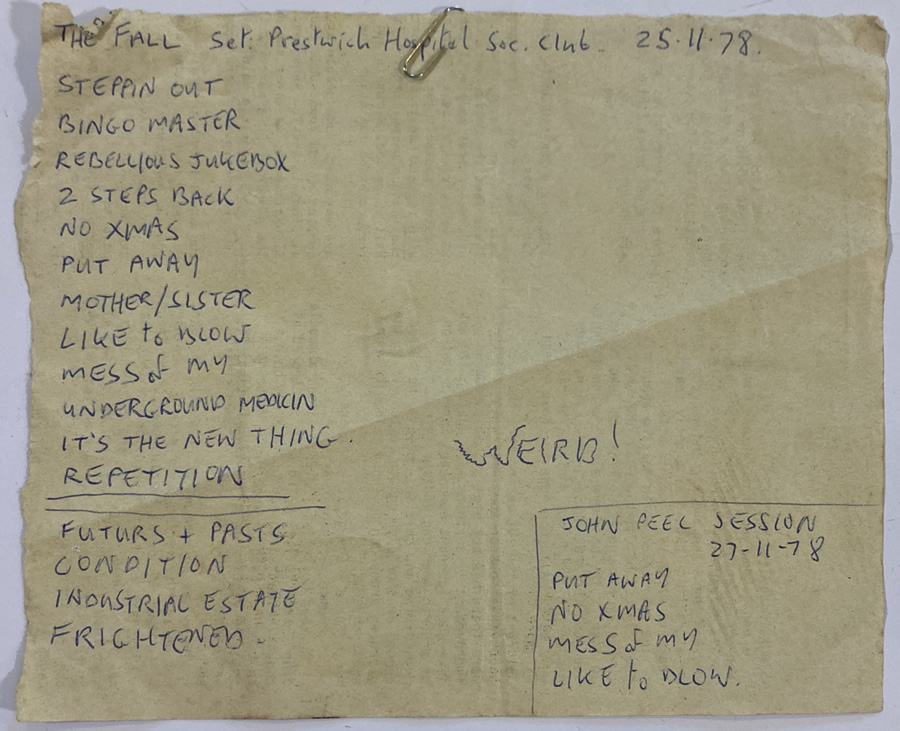 THE FALL Set. Prestwich Hospital Soc. Club. 25.11.78.
STEPPIN OUT
BINGO MASTER
REBELLIOUS JUKEBOX
2 STEPS BACK
NO XMAS
PUT AWAY
MOTHER/SISTER
LIKE to BLOW
MESS of MY
UNDERGROUND MEDICIN
IT'S THE NEW THING.
REPETITION
FUTURS + PASTS
CONDITION
INDUSTRIAL ESTATE
FRIGHTENED.
WEIRD!
JOHN PEEL SESSION
27-11-78
PUT AWAY
NO XMAS
MESS of MY
LIKE to BLOW.